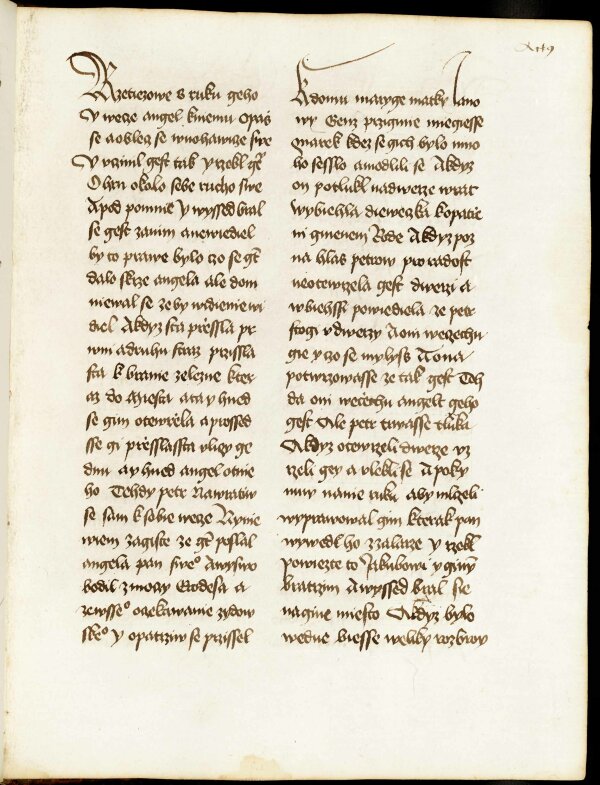 Rzetiezowe s ruku geho
y wecze angel knemu opaš
se aobleč se wnohawicze swe
Y vczinil gest tak y rzekl gt
Ohrn okolo sebe rucho swe
Apod pomnie y wyssed bral
se gest zanim anewiediel
by to prawe bylo czo se gt
dalo skrze angela ale dom
niewal se zeby widienie wi
diel Akdyz sta pressla pr
wni adruhu straz przissla
sta k branie zelezne kter
az do miesta ata y hned
se gim otewrela aprossed
sse gi presslassta vliczy ge
dnu ay hned angel otnie
ho Tehdy petr Nawratiw
se sam k sobie wecze Nynie
wiem zagiste ze gt poslal
angela pan sweo Awyswo
bodil zmoczy Erodesa a
zewsseo oczekawanie zydow
skeo y opatrziw se przissel
Kdomu maryge matky Jano
wy Genz przigmie miegiesse
marek kdez se gich bylo mno
ho sesslo amodlili se Akdyz
on potlukl nadwerze wrat
wybiehla dieweczka kopatrě
ni gmenem Rode Akdyz poz
na hlas petrow pro radost
neotewrzela gest dwerzi a
wbiehssi powiediela ze petr
stogi vdwerzy Aoni weczechu
gie y czo se myslyss Aona
potwrzowasse ze tak gest Teh
da oni weczechu angelt geho
gest Ale petr trwasse tluka
Akdyz otewrzeli dwerze vz
rzeli gey a vlekli se A poky
nuw nanie ruku aby mlczeli
wyprawowal gim kterak pan
wywedl ho zzalarze y rzekl
powiezte to Jakubowi y ginym
bratrzim Awyssed bral sie
nagine miesto Akdyz bylo
wedne biesse weliky rozbroy